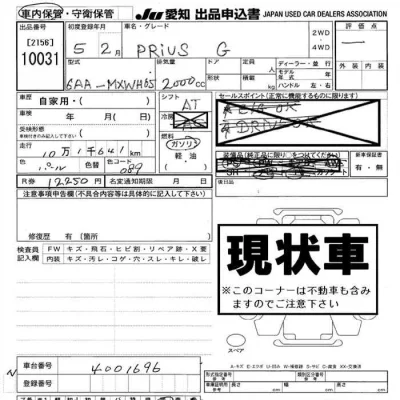 車内保管・守衛保管
JU 愛知 出品申込書 JAPAN USED CAR DEALERS ASSOCIATION
出品番号
[2156]
10031
初度登録年月
5 2月
車名・グレード
PRIUS G
2WD・4WD
評価点
外装 内装
型式
6AA-MXWH65
排気量
2000cc
ドア
形状
定員
人
ディーラー・並行
モデル年式 年
ハンドル 左・右
車歴
自家用・( )
車検
年 月( 日)
受検形態
シフト
AT
冷房
燃料
ガソリン
軽油
( )
セールスポイント(正常に機能するものに限ります)
走行
10万 1千641 km
色
パール
色替
色コード
089
R券
12,250円
名変通知期限 月 日
新車時保証書
有・無
後日品
注意事項申告欄(不具合内容等は具体的に記入して下さい)
修復歴 有(箇所 )
検査員記入欄
FW キズ・飛石・ヒビ割・リペア跡・X要
内装 キズ・汚レ・コゲ・穴・スレ・キレ・破レ
現状車
※このコーナーは不動車も含みますのでご注意下さい
スペア
車台番号
4001696
登録番号
型式指定番号
類別区分番号
長さ cm
幅 cm
高さ cm